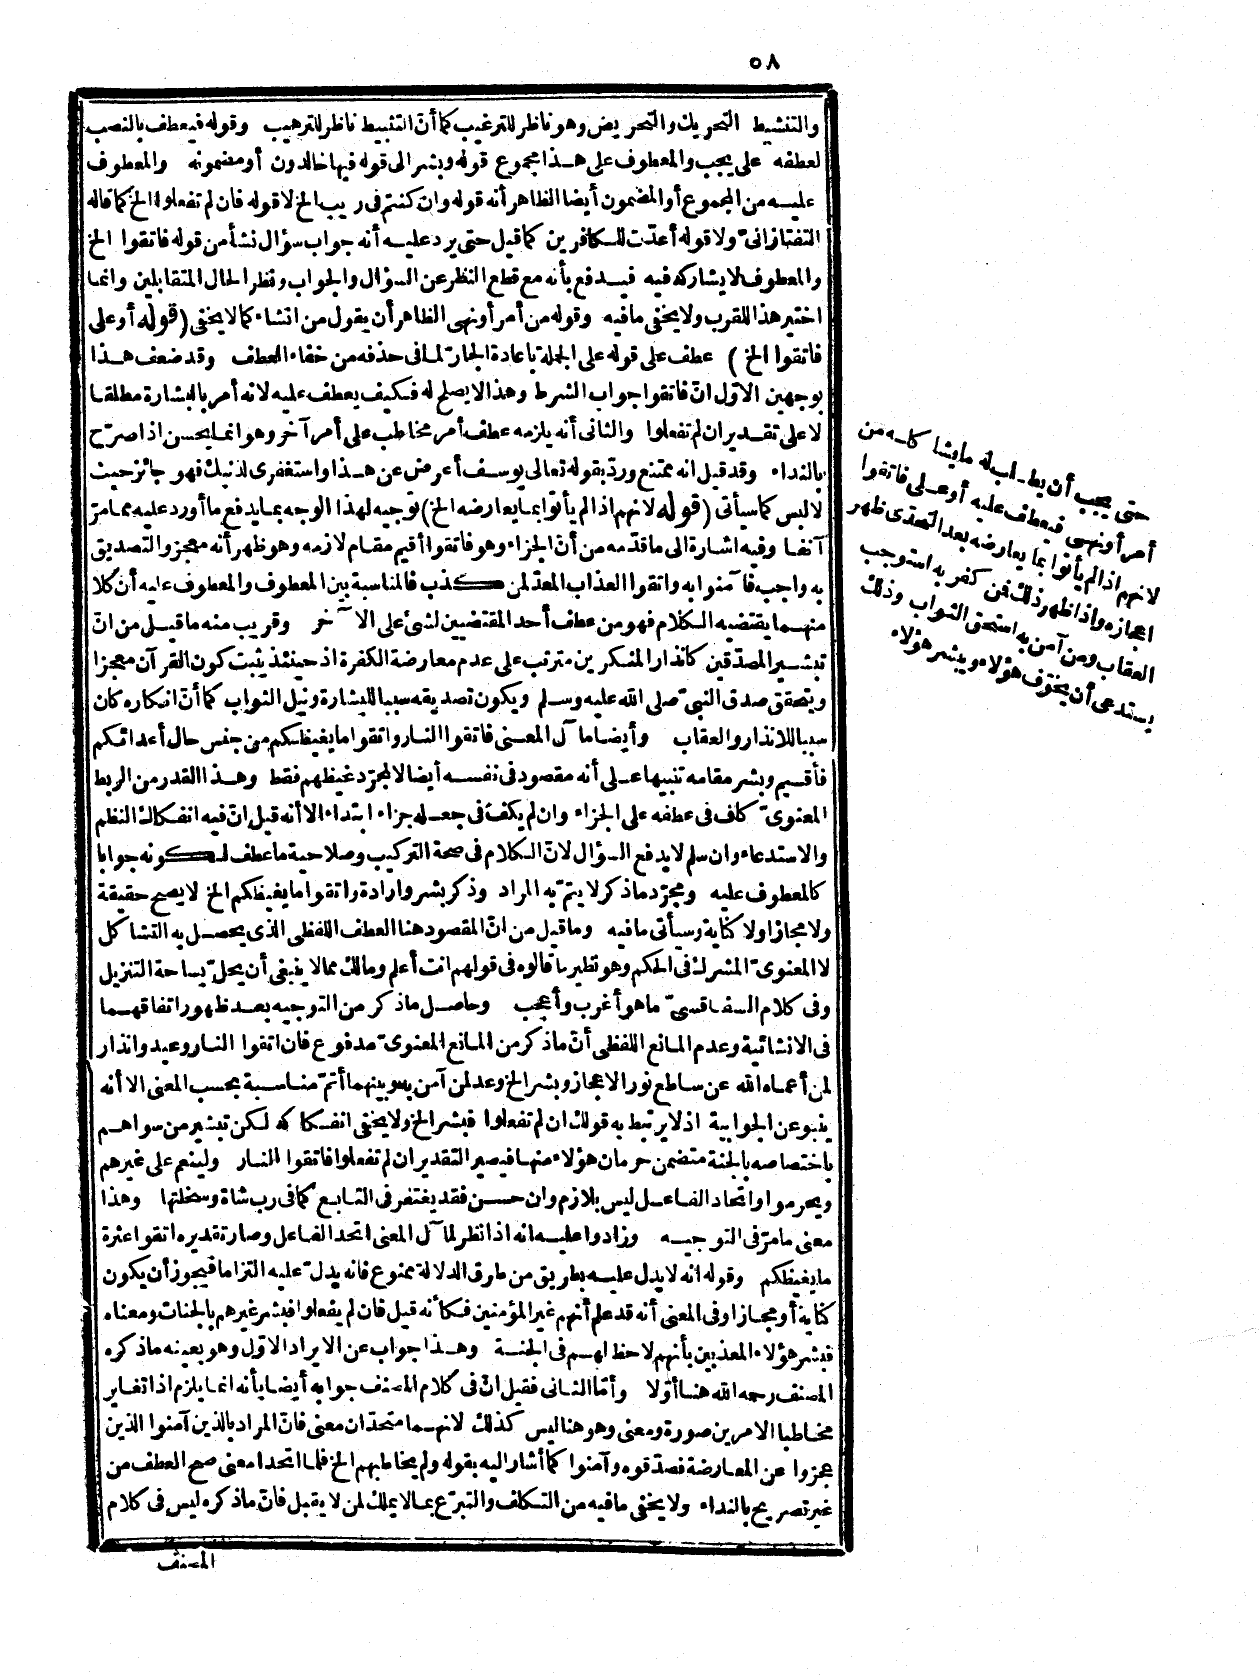 ٥٨
والتنشيط التحريك والتحريض وهو ناظر للترغيب كما أنّ التثبيط ناظر للترهيب وقوله فيعطف بالنصب
لعطفه على يجب والمعطوف على هذا مجموع قوله وبشر الى قوله فيها خالدون أو مضمونه والمعطوف
عليه من المجموع أو المضمون أيضا الظاهر أنه قوله وان كنتم فى ريب الخ لا قوله فان لم تفعلوا الخ كما قاله
التفتازانىّ ولا قوله أعدّت للكافرين كما قيل حتى يرد عليه أنه جواب سؤال نشأ من قوله فاتقوا الخ
والمعطوف لا يشاركه فيه فيدفع بأنه مع قطع النظر عن السؤال والجواب ونظر الحال المتقابلين وانما
اختير هذا للقرب ولا يخفى ما فيه وقوله من أمر أو نهى الظاهر أن يقول من انشاء كما لا يخفى (قوله أو على
فاتقوا الخ) عطف على قوله على الجملة باعادة الجارّ لما فى حذفه من خفاء العطف وقد ضعف هذا
بوجهين الاوّل انّ فاتقوا جواب الشرط وهذا لا يصلح له فكيف يعطف عليه لانه أمر بالبشارة مطلقا
لا على تقدير ان لم تفعلوا والثانى أنه يلزمه عطف أمر مخاطب على أمر آخر وهو انما يحسن اذا صرّح
بالنداء وقد قيل انه ممتنع وردّ بقوله تعالى يوسف أعرض عن هذا واستغفرى لذنبك فهو جائز حيث
لا لبس كما سيأتى (قوله لانهم اذا لم يأتوا بما يعارضه الخ) توجيه لهذا الوجه بما يدفع ما أورد عليه مما مرّ
آنفا وفيه اشارة الى ما قدّمه من أنّ الجزاء وهو فاتقوا أقيم مقام لازمه وهو ظهر أنه معجز والتصديق
به واجب فآمنوا به واتقوا العذاب المعدّ لمن كذب فالمناسبة بين المعطوف والمعطوف عليه أن كلا
منهما يقتضيه الكلام فهو من عطف أحد المقتضيين لشئ على الآخر وقريب منه ما قيل من انّ
تبشير المصدّقين كانذار المنكرين مترتب على عدم معارضة الكفرة اذ حينئذ يثبت كون القرآن معجزا
ويتحقق صدق النبىّ صلى الله عليه وسلم ويكون تصديقه سببا للبشارة ونيل الثواب كما أنّ انكاره كان
سببا للانذار والعقاب وأيضا مآل المعنى فاتقوا النار واتقوا ما يغيظكم من جنس حال أعدائكم
فأقيم وبشر مقامه تنبيها على أنه مقصود فى نفسه أيضا لا لمجرّد غيظهم فقط وهذا القدر من الربط
المعنوىّ كاف فى عطفه على الجزاء وان لم يكف فى جعله جزاء ابتداء الا أنه قيل انّ فيه انفكاك النظم
والاستدعاء وان سلم لا يدفع السؤال لانّ الكلام فى صحة التركيب وصلاحية ما عطف لكونه جوابا
كالمعطوف عليه ومجرّد ما ذكر لا يتمّ به المراد وذكر بشر وارادة واتقوا ما يغيظكم الخ لا يصح حقيقة
ولا مجازا ولا كناية وسيأتى ما فيه وما قيل من انّ المقصود هنا العطف اللفظى الذى يحصل به التشاكل
لا المعنوىّ المشرك فى الحكم وهو نظير ما قالوه فى قولهم انت أعلم ومالك مما لا ينبغى أن يحلّ بساحة التنزيل
وفى كلام السفاقسىّ ما هو أغرب وأعجب وحاصل ما ذكر من التوجيه بعد ظهور اتفاقهما
فى الانشائية وعدم المانع اللفظى أنّ ما ذكر من المانع المعنوىّ مدفوع فان اتقوا النار وعيد وانذار
لمن أعماه الله عن ساطع نور الاعجاز وبشر الخ وعد لمن آمن به وبينهما أتمّ مناسبة بحسب المعنى الا أنه
ينبو عن الجوابية اذ لا يرتبط به قولك ان لم تفعلوا فبشر الخ ولا يخفى انفكاكه لكن تبشير من سواهم
باختصاصه بالجنة متضمن حرمان هؤلاء منها فيصير التقدير ان لم تفعلوا فاتقوا النار ولينعم على غيرهم
ويحرموا واتحاد الفاعل ليس بلازم وان حسن فقد يغتفر فى التابع كما فى رب شاة وسخلتها وهذا
معنى ما مرّ فى التوجيه وزادوا عليه انه اذا نظر لمآل المعنى اتحد الفاعل وصار تقديره اتقوا عثرة
ما يغيظكم وقوله انه لا يدل عليه بطريق من طرق الدلالة ممنوع فانه يدلّ عليه التزاما فيجوز أن يكون
كناية أو مجازا وفى المعنى أنه قد علم أنهم غير المؤمنين فكأنه قيل فان لم يفعلوا فبشر غيرهم بالجنات ومعناه
فبشر هؤلاء المعذبين بأنهم لا حظ لهم فى الجنة وهذا جواب عن الايراد الاوّل وهو بعينه ما ذكره
المصنف رحمه الله هنا أوّلا وأمّا الثانى فقيل انّ فى كلام المصنف جوابه أيضا بأنه انما يلزم اذا تغاير
مخاطبا الامرين صورة ومعنى وهو هنا ليس كذلك لانهما متحدان معنى فانّ المراد بالذين آمنوا الذين
عجزوا عن المعارضة فصدّقوه وآمنوا كما أشار اليه بقوله ولم يخاطبهم الخ فلما اتحدا معنى صح العطف من
غير تصريح بالنداء ولا يخفى ما فيه من التكلف والتبرّع بما لا يملك لمن لا يقبل فانّ ما ذكره ليس فى كلام
المصنف
حتى يجب أن يطلب له ما يشاكله من
أمر أو نهى فيعطف عليه أو على فاتقوا
لانهم اذا لم يأتوا بما يعارضه بعد التحدّى ظهر
اعجازه واذا ظهر ذلك فمن كفر به استوجب
العقاب ومن آمن به استحق الثواب وذلك
يستدعى أن يخوّف هؤلاء ويبشر هؤلاء